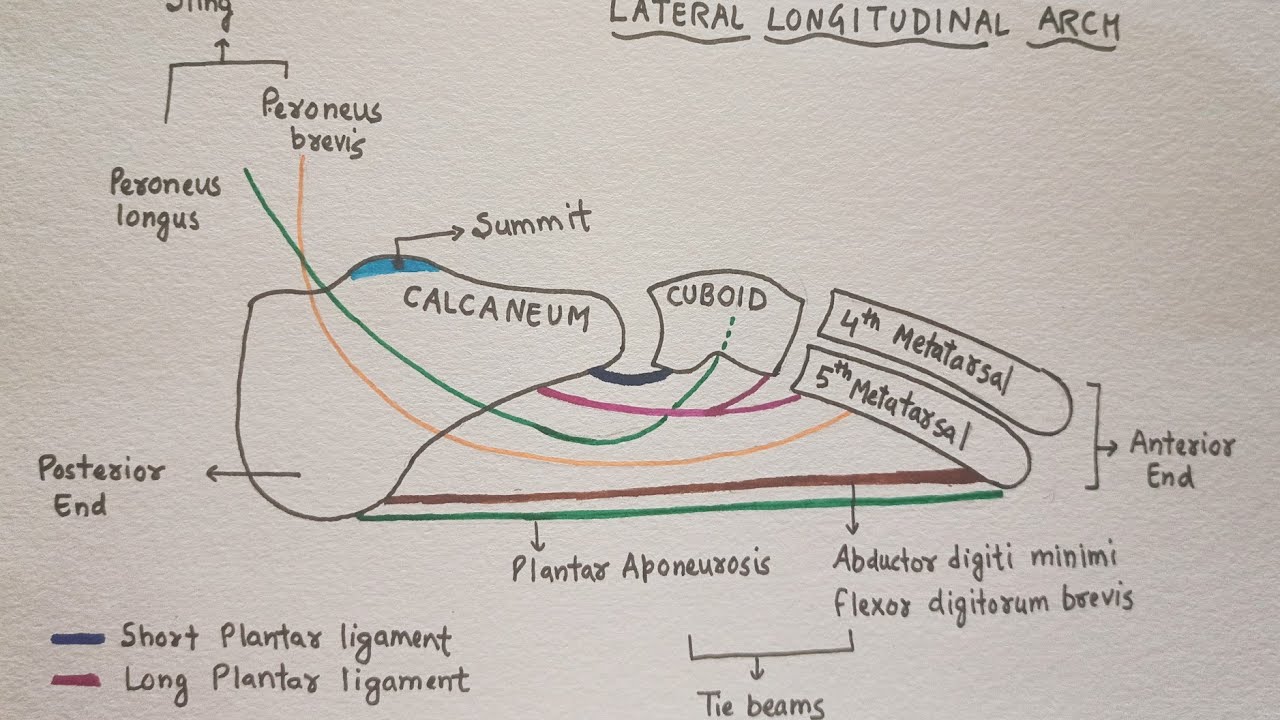 Sling
LATERAL LONGITUDINAL ARCH
Peroneus
brevis
Peroneus
longus
Summit
CALCANEUM
CUBOID
4th Metatarsal
5th Metatarsal
Anterior
End
Posterior
End
Plantar Aponeurosis
Abductor digiti minimi
flexor digitorum brevis
Short Plantar ligament
Long Plantar ligament
Tie beams